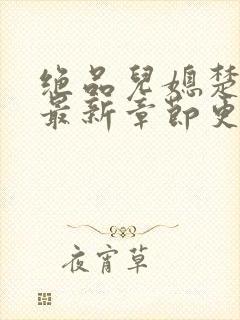 绝品儿媳楚
最新章节更
夜宵草